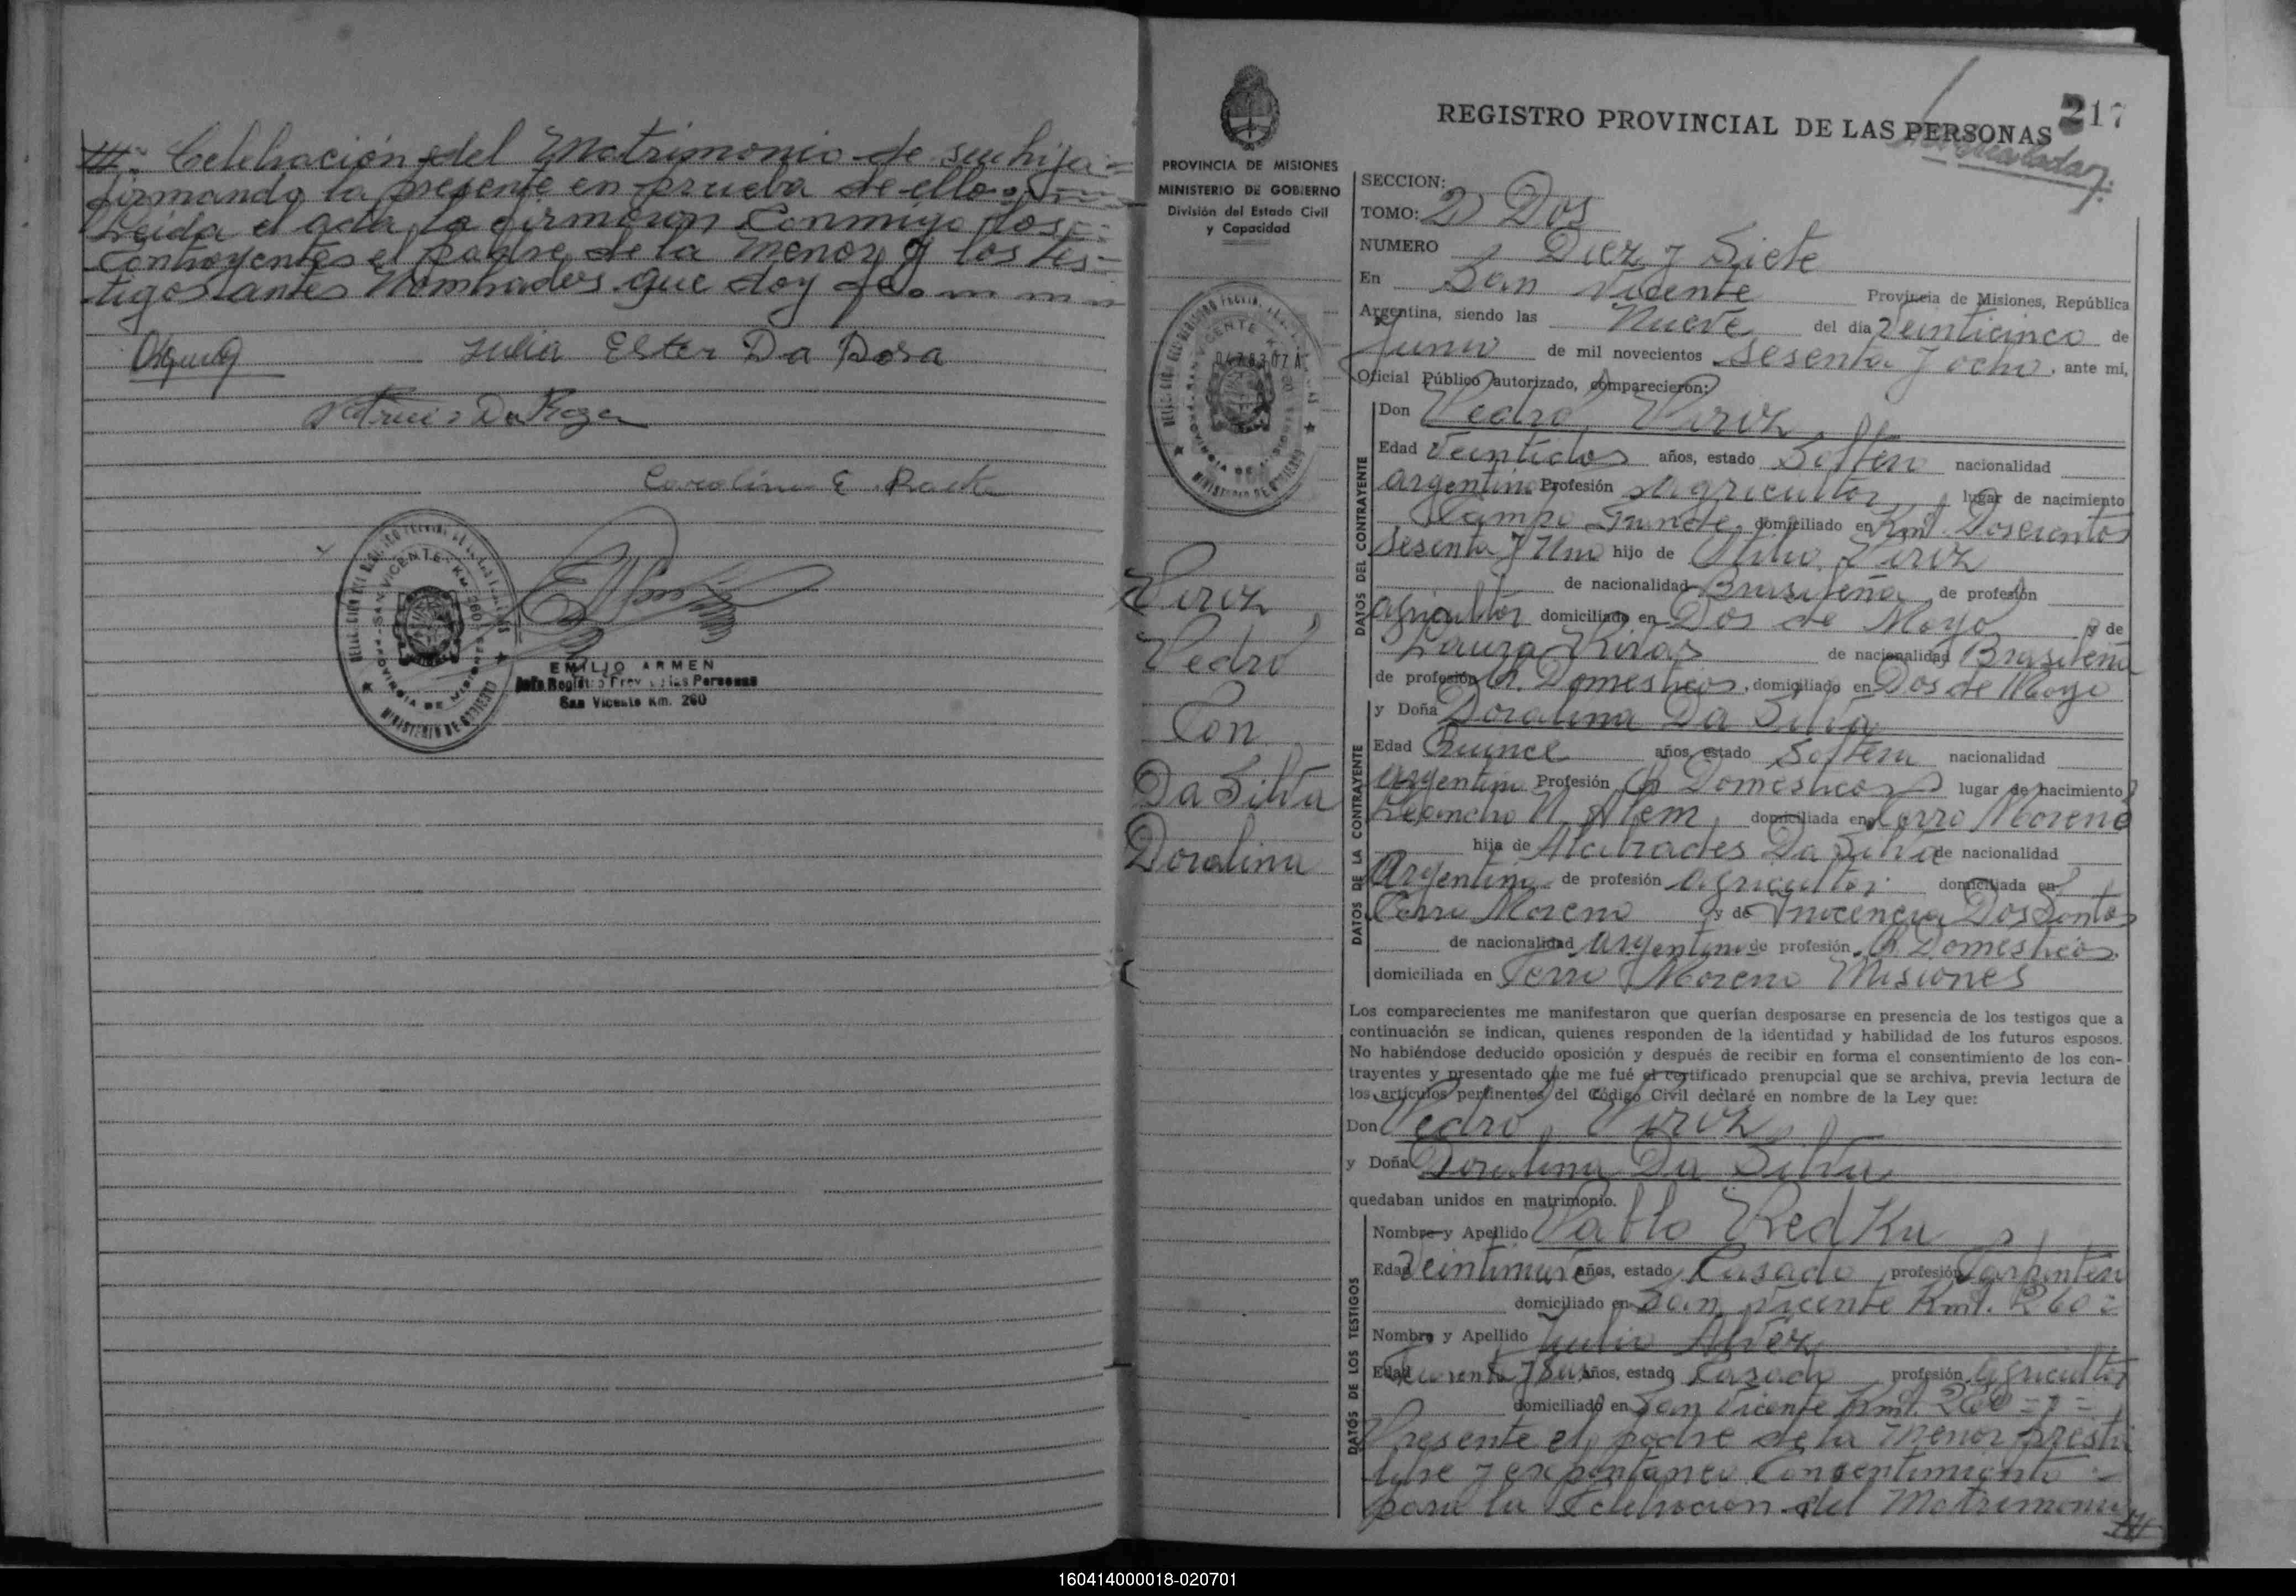 Celebración del Matrimonio de su hija
firmando la presente en prueba de ello
Leida el acta, la firmaron Conmigo, los
Contrayentes el padre de la menor y los tes-
tigos antes Nombrados que doy fe.
Julia Ester Da Rosa
Da Roza
Carolina E.
EMILIO ARMEN
Jefe Registro Prov. de las Personas
San Vicente Km. 260
PROVINCIA DE MISIONES
MINISTERIO DE GOBIERNO
División del Estado Civil
y Capacidad
Pedro
Con
Da Silva
Doralina
REGISTRO PROVINCIAL DE LAS PERSONAS
217
SECCION:
TOMO: 2) Dos
NUMERO Diez y Siete
En San Vicente Provincia de Misiones, República
Argentina, siendo las Nueve del día Veinticinco de
Junio de mil novecientos Sesenta y ocho, ante mi,
Oficial Público autorizado, comparecieron:
DATOS DEL CONTRAYENTE
Don Pedro
Edad Veintidos años, estado Soltero nacionalidad
argentino Profesión agricultor lugar de nacimiento
Campo Grande, domiciliado en Kmt. Doscientos
Sesenta y Uno hijo de
de nacionalidad Brasileña, de profesión
agricultor domiciliado en Dos de Mayo y de
Laura de nacionalidad Brasileña
de profesión Q. Domesticos, domiciliado en Dos de Mayo
DATOS DE LA CONTRAYENTE
y Doña Doralina Da Silva
Edad Quince años, estado Soltera nacionalidad
argentina Profesión Q. Domesticos lugar de nacimiento
Leandro N. Alem, domiciliada en Cerro Moreno
hija de Da Silva de nacionalidad
Argentina de profesión agricultor domiciliada en
Cerro Moreno y de Inocencia Dos Santos
de nacionalidad argentina de profesión Q. Domesticos
domiciliada en Cerro Moreno Misiones
Los comparecientes me manifestaron que querían desposarse en presencia de los testigos que a
continuación se indican, quienes responden de la identidad y habilidad de los futuros esposos.
No habiéndose deducido oposición y después de recibir en forma el consentimiento de los con-
trayentes y presentado que me fué el certificado prenupcial que se archiva, previa lectura de
los artículos pertinentes del Código Civil declaré en nombre de la Ley que:
Don Pedro
y Doña Doralina Da Silva
quedaban unidos en matrimonio.
DATOS DE LOS TESTIGOS
Nombre y Apellido Pablo
Edad años, estado Casado profesión Carpintero
domiciliado en San Vicente Kmt. 260
Nombre y Apellido Julio Alvez
Edad años, estado Casado profesión agricultor
domiciliado en San Vicente Kmt. 260
Presente el padre de la Menor presta
libre y expontaneo Consentimiento
para la Celebracion del Matrimonio
160414000018-020701